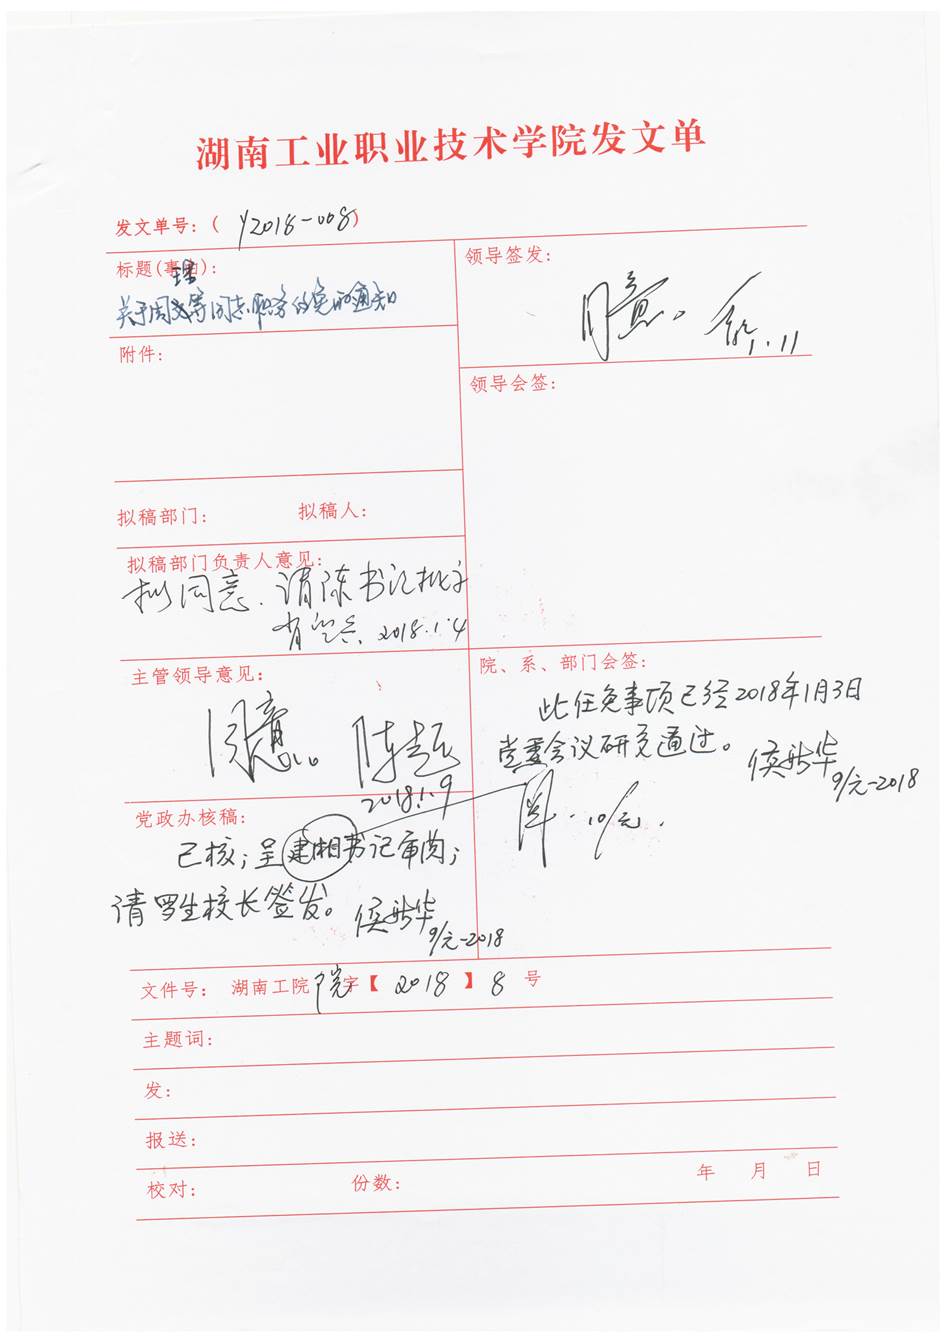 湖南工业职业技术学院发文单
发文单号：( Y2018-008)
标题(事由)：
关于周理等同志职务的免的通知
附件：
领导签发：
同意。
1.11
领导会签：
拟稿部门：
拟稿人：
拟稿部门负责人意见：
拟同意．请陈书记批示
2018.1.4
主管领导意见：
同意。
陈超
2018.1.9
院、系、部门会签：
此任免事项已经2018年1月3日
党委会议研究通过。
侯新华
9/元-2018
10/元.
党政办核稿：
已核；呈建湘书记审阅；
请罗生校长签发。
侯新华
9/元-2018
文件号： 湖南工院院字【 2018 】 8 号
主题词：
发：
报送：
校对：
份数：
年 月 日